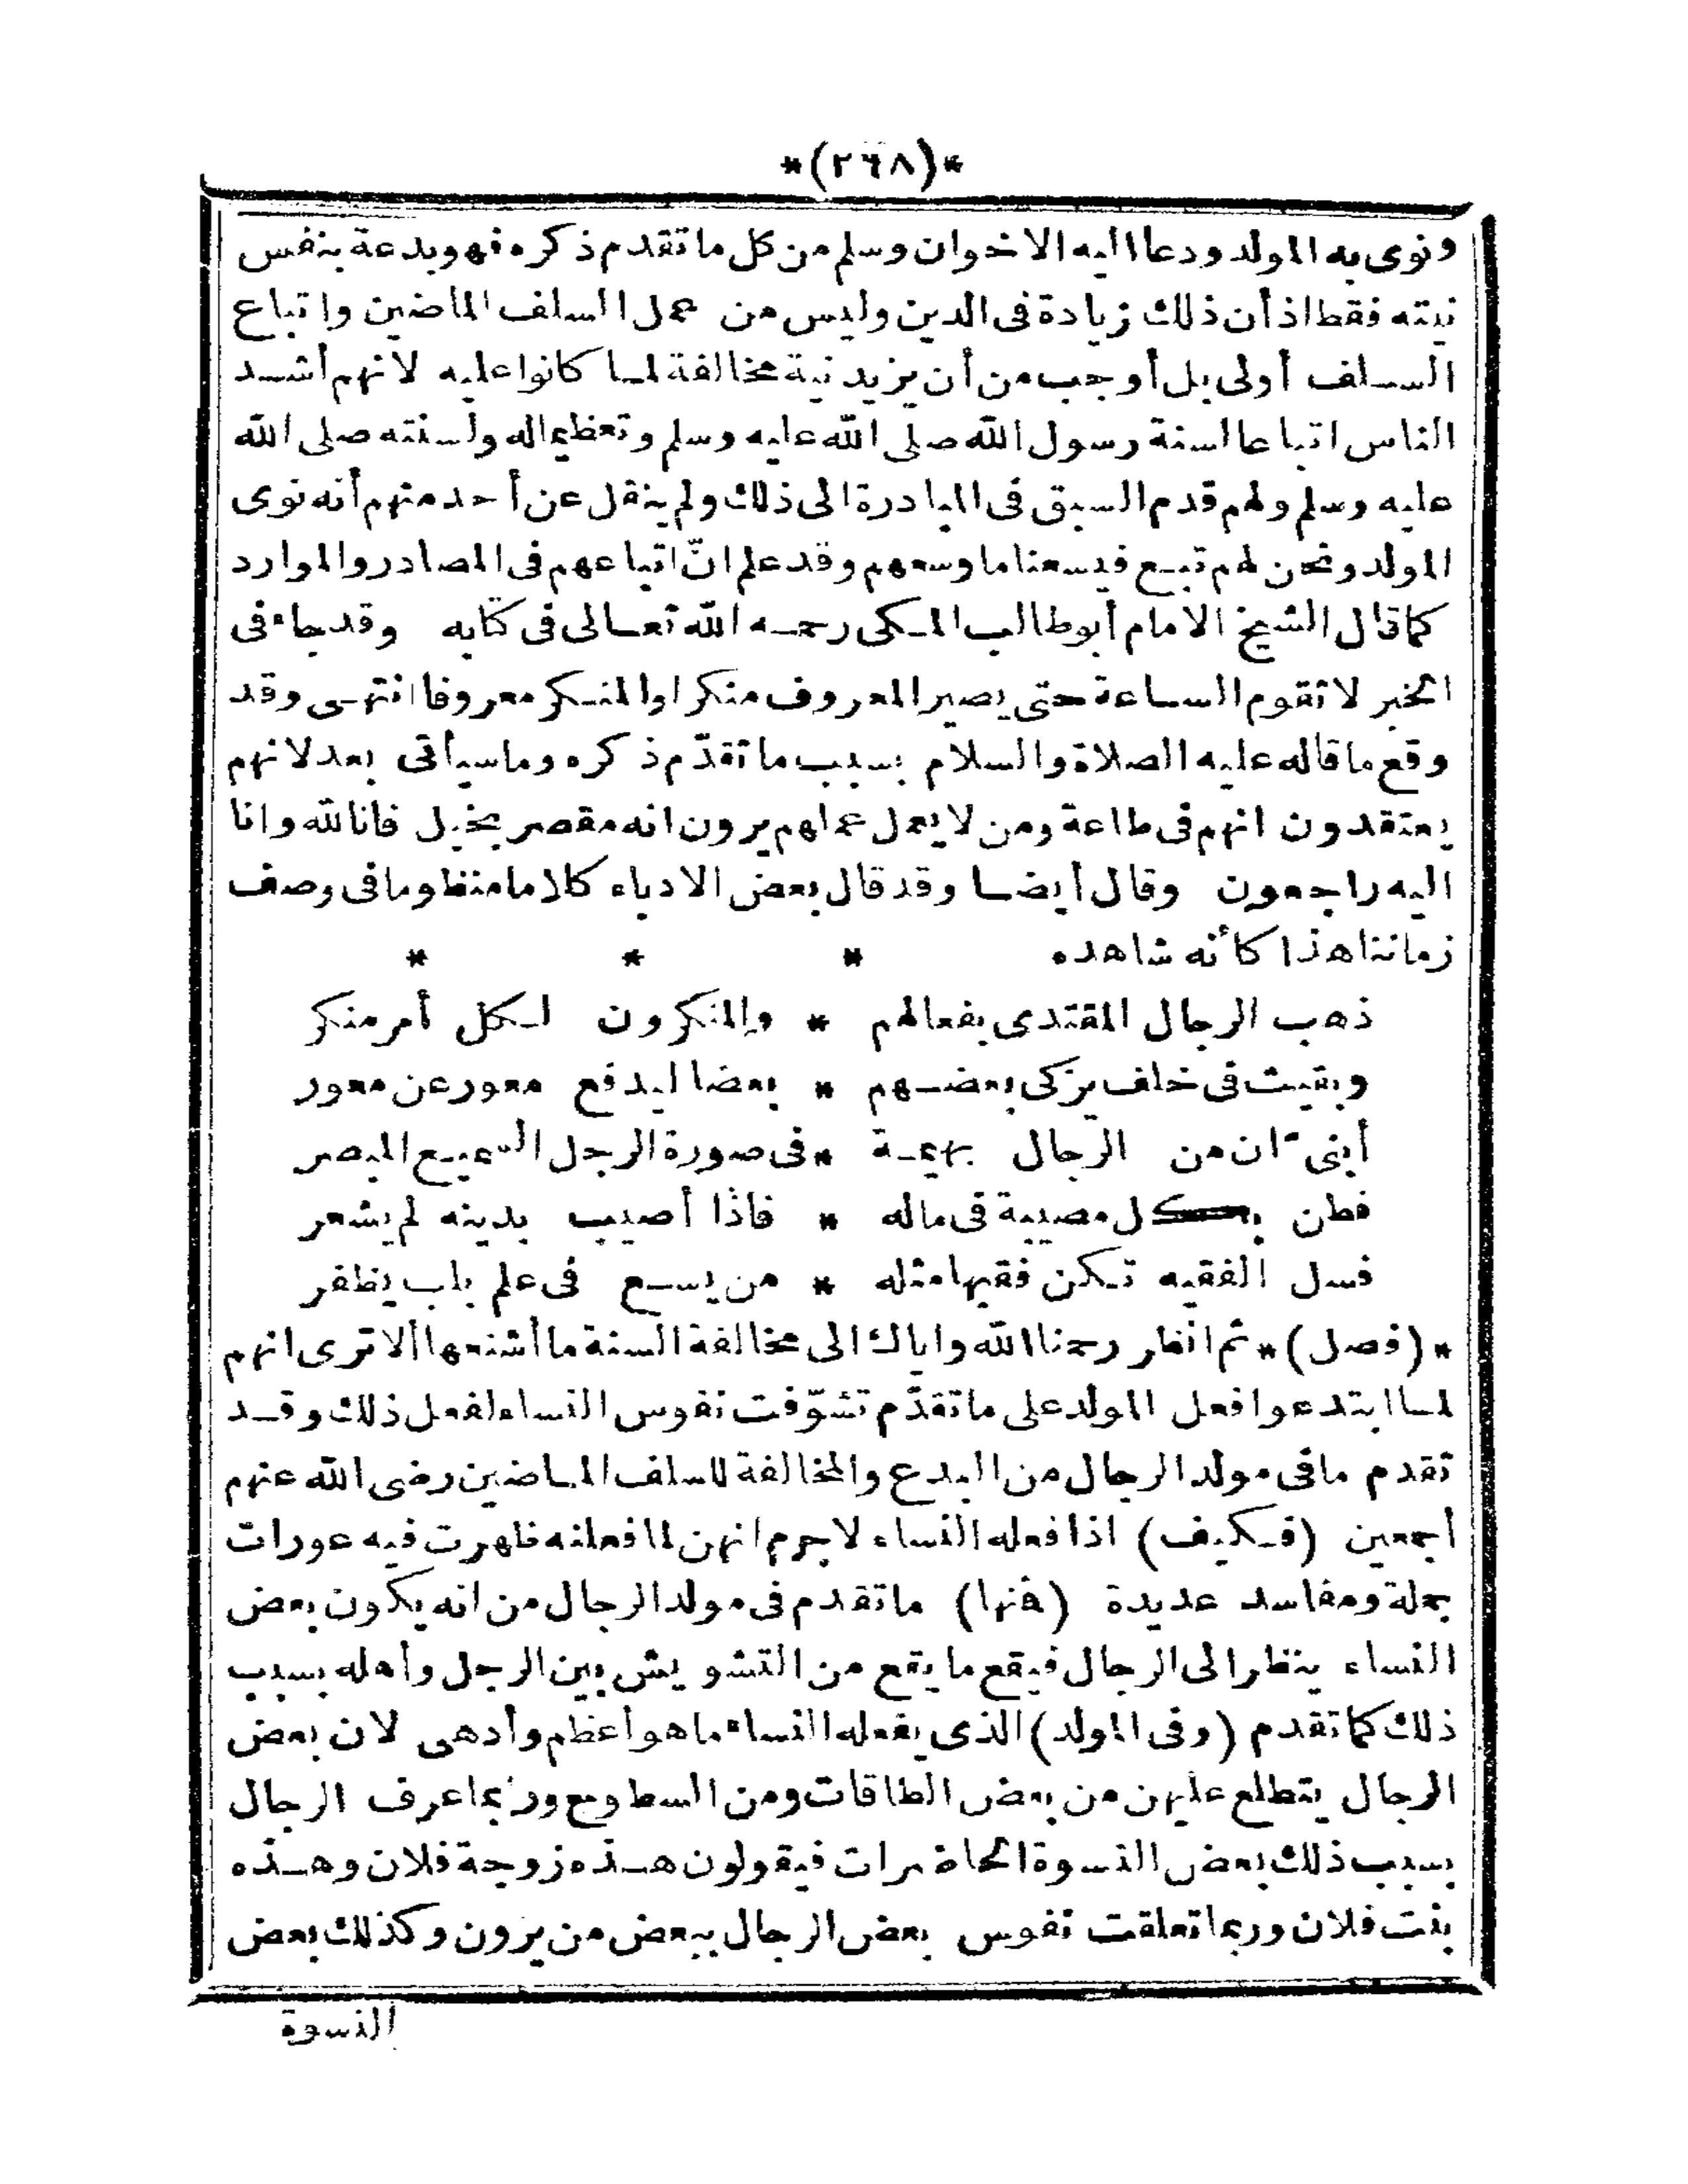 *(٢٦٨)*
ونوى به المولد ودعا اليه الاخوان وسلم من كل ما تقدم ذكره فهو بدعة بنفس
نيته فقط اذ أن ذلك زيادة فى الدين وليس من عمل السلف الماضين واتباع
السلف أولى بل أوجب من أن يزيد نية مخالفة لما كانوا عليه لانهم أشد
الناس اتباعا لسنة رسول الله صلى الله عليه وسلم وتعظيما له ولسنته صلى الله
عليه وسلم ولهم قدم السبق فى المبادرة الى ذلك ولم ينقل عن أحد منهم أنه نوى
المولد ونحن لهم تبع فيسعنا ما وسعهم وقد علم انّ اتباعهم فى المصادر والموارد
كما قال الشيخ الامام أبو طالب المكى رحمه الله تعالى فى كتابه وقد جاء فى
الخبر لا تقوم الساعة حتى يصير المعروف منكرا والمنكر معروفا انتهى وقد
وقع ما قاله عليه الصلاة والسلام بسبب ما تقدّم ذكره وما سيأتى بعد لانهم
يعتقدون انهم فى طاعة ومن لا يعمل عملهم يرون انه مقصر بخيل فانا لله وانا
اليه راجعون وقال أيضا وقد قال بعض الادباء كلاما منظوما فى وصف
زماننا هذا كأنه شاهده * * *
ذهب الرجال المقتدى بفعالهم * والمنكرون لكل أمر منكر
وبقيت فى خلف يزكى بعضهم * بعضا ليدفع معور عن معور
أبنى ان من الرجال بهيمة * فى صورة الرجل السميع المبصر
فطن بكل مصيبة فى ماله * فاذا أصيب بدينه لم يشعر
فسل الفقيه تكن فقيها مثله * من يسع فى علم بلب يظفر
*(فصل)* ثم انظر رحمنا الله واياك الى مخالفة السنة ما أشنعها ألا ترى انهم
لما ابتدعوا فعل المولد على ما تقدّم تشوّفت نفوس النساء لفعل ذلك وقد
تقدم ما فى مولد الرجال من البدع والمخالفة للسلف الماضين رضى الله عنهم
أجمعين (فكيف) اذا فعله النساء لا جرم انهن لما فعلنه ظهرت فيه عورات
جملة ومفاسد عديدة (فمنها) ما تقدم فى مولد الرجال من انه يكون بعض
النساء ينظر الى الرجال فيقع ما يقع من التشويش بين الرجل وأهله بسبب
ذلك كما تقدم (وفى المولد) الذى يفعله النساء ما هو أعظم وأدهى لان بعض
الرجال يتطلع عليهن من بعض الطاقات ومن السطوح وربما عرف الرجال
بسبب ذلك بعض النسوة الحاضرات فيقولون هذه زوجة فلان وهذه
بنت فلان وربما تعلقت نفوس بعض الرجال ببعض من يرون وكذلك بعض
النسوة